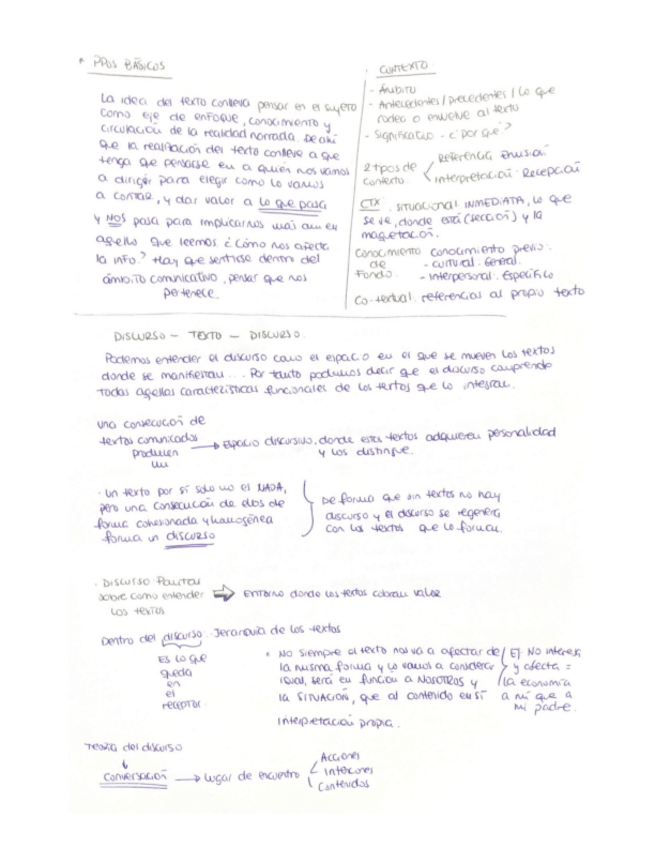 * PPOS BÁSICOS
La idea del texto conlleva pensar en el sujeto
como eje de enfoque, conocimiento y
circulación de la realidad narrada. De ahí
que la realización del texto conlleve a que
tenga que pensarse en a quién nos vamos
a dirigir para elegir como lo vamos
a contar, y dar valor a lo que pasa
y NOS pasa para implicarnos más aun en
aquello que leemos ¿Cómo nos afecta
la info.? Hay que sentirse dentro del
ámbito comunicativo, pensar que nos
pertenece.
CONTEXTO.
- Ámbito
- Antecedentes / precedentes / Lo que
rodea o envuelve al texto
- Significativo - ¿por qué?
2 tipos de contexto.
Referencia: Emisión
Interpretación: Recepción
CTX. SITUACIONAL: INMEDIATA, lo que
se ve, donde está (sección) y la
maquetación.
Conocimiento de Fondo.
conocimiento previo:
- cultural: General.
- Interpersonal: Específico
Co-textual: referencias al propio texto
DISCURSO - TEXTO - DISCURSO.
Podemos entender el discurso como el espacio en el que se mueven los textos
donde se manifiestan... Por tanto podemos decir que el discurso comprende
todas aquellas características funcionales de los textos que lo integran.
una consecución de
textos comunicados → Espacio discursivo, donde estos textos adquieren personalidad
producen y los distingue.
un
· Un texto por sí solo no es NADA,
pero una consecución de ellos de
forma cohesionada y homogénea
forma un discurso
De forma que sin textos no hay
discurso y el discurso se regenera
con los textos que lo forman.
· DISCURSO: Pautas
sobre como entender ⇒ ENTORNO donde los textos cobran valor
los textos
Dentro del discurso: Jerarquía de los textos
Es lo que
queda
en
el
receptor.
* No siempre el texto nos va a afectar de
la misma forma y lo vamos a considerar
igual, será en función a NOSOTROS y
la SITUACIÓN, que al contenido en sí
Interpretación propia.
Ej. No interesa
y afecta =
la economía
a mí que a
mi padre.
Teoría del discurso
↓
Conversación → Lugar de encuentro
Acciones
Contenidos